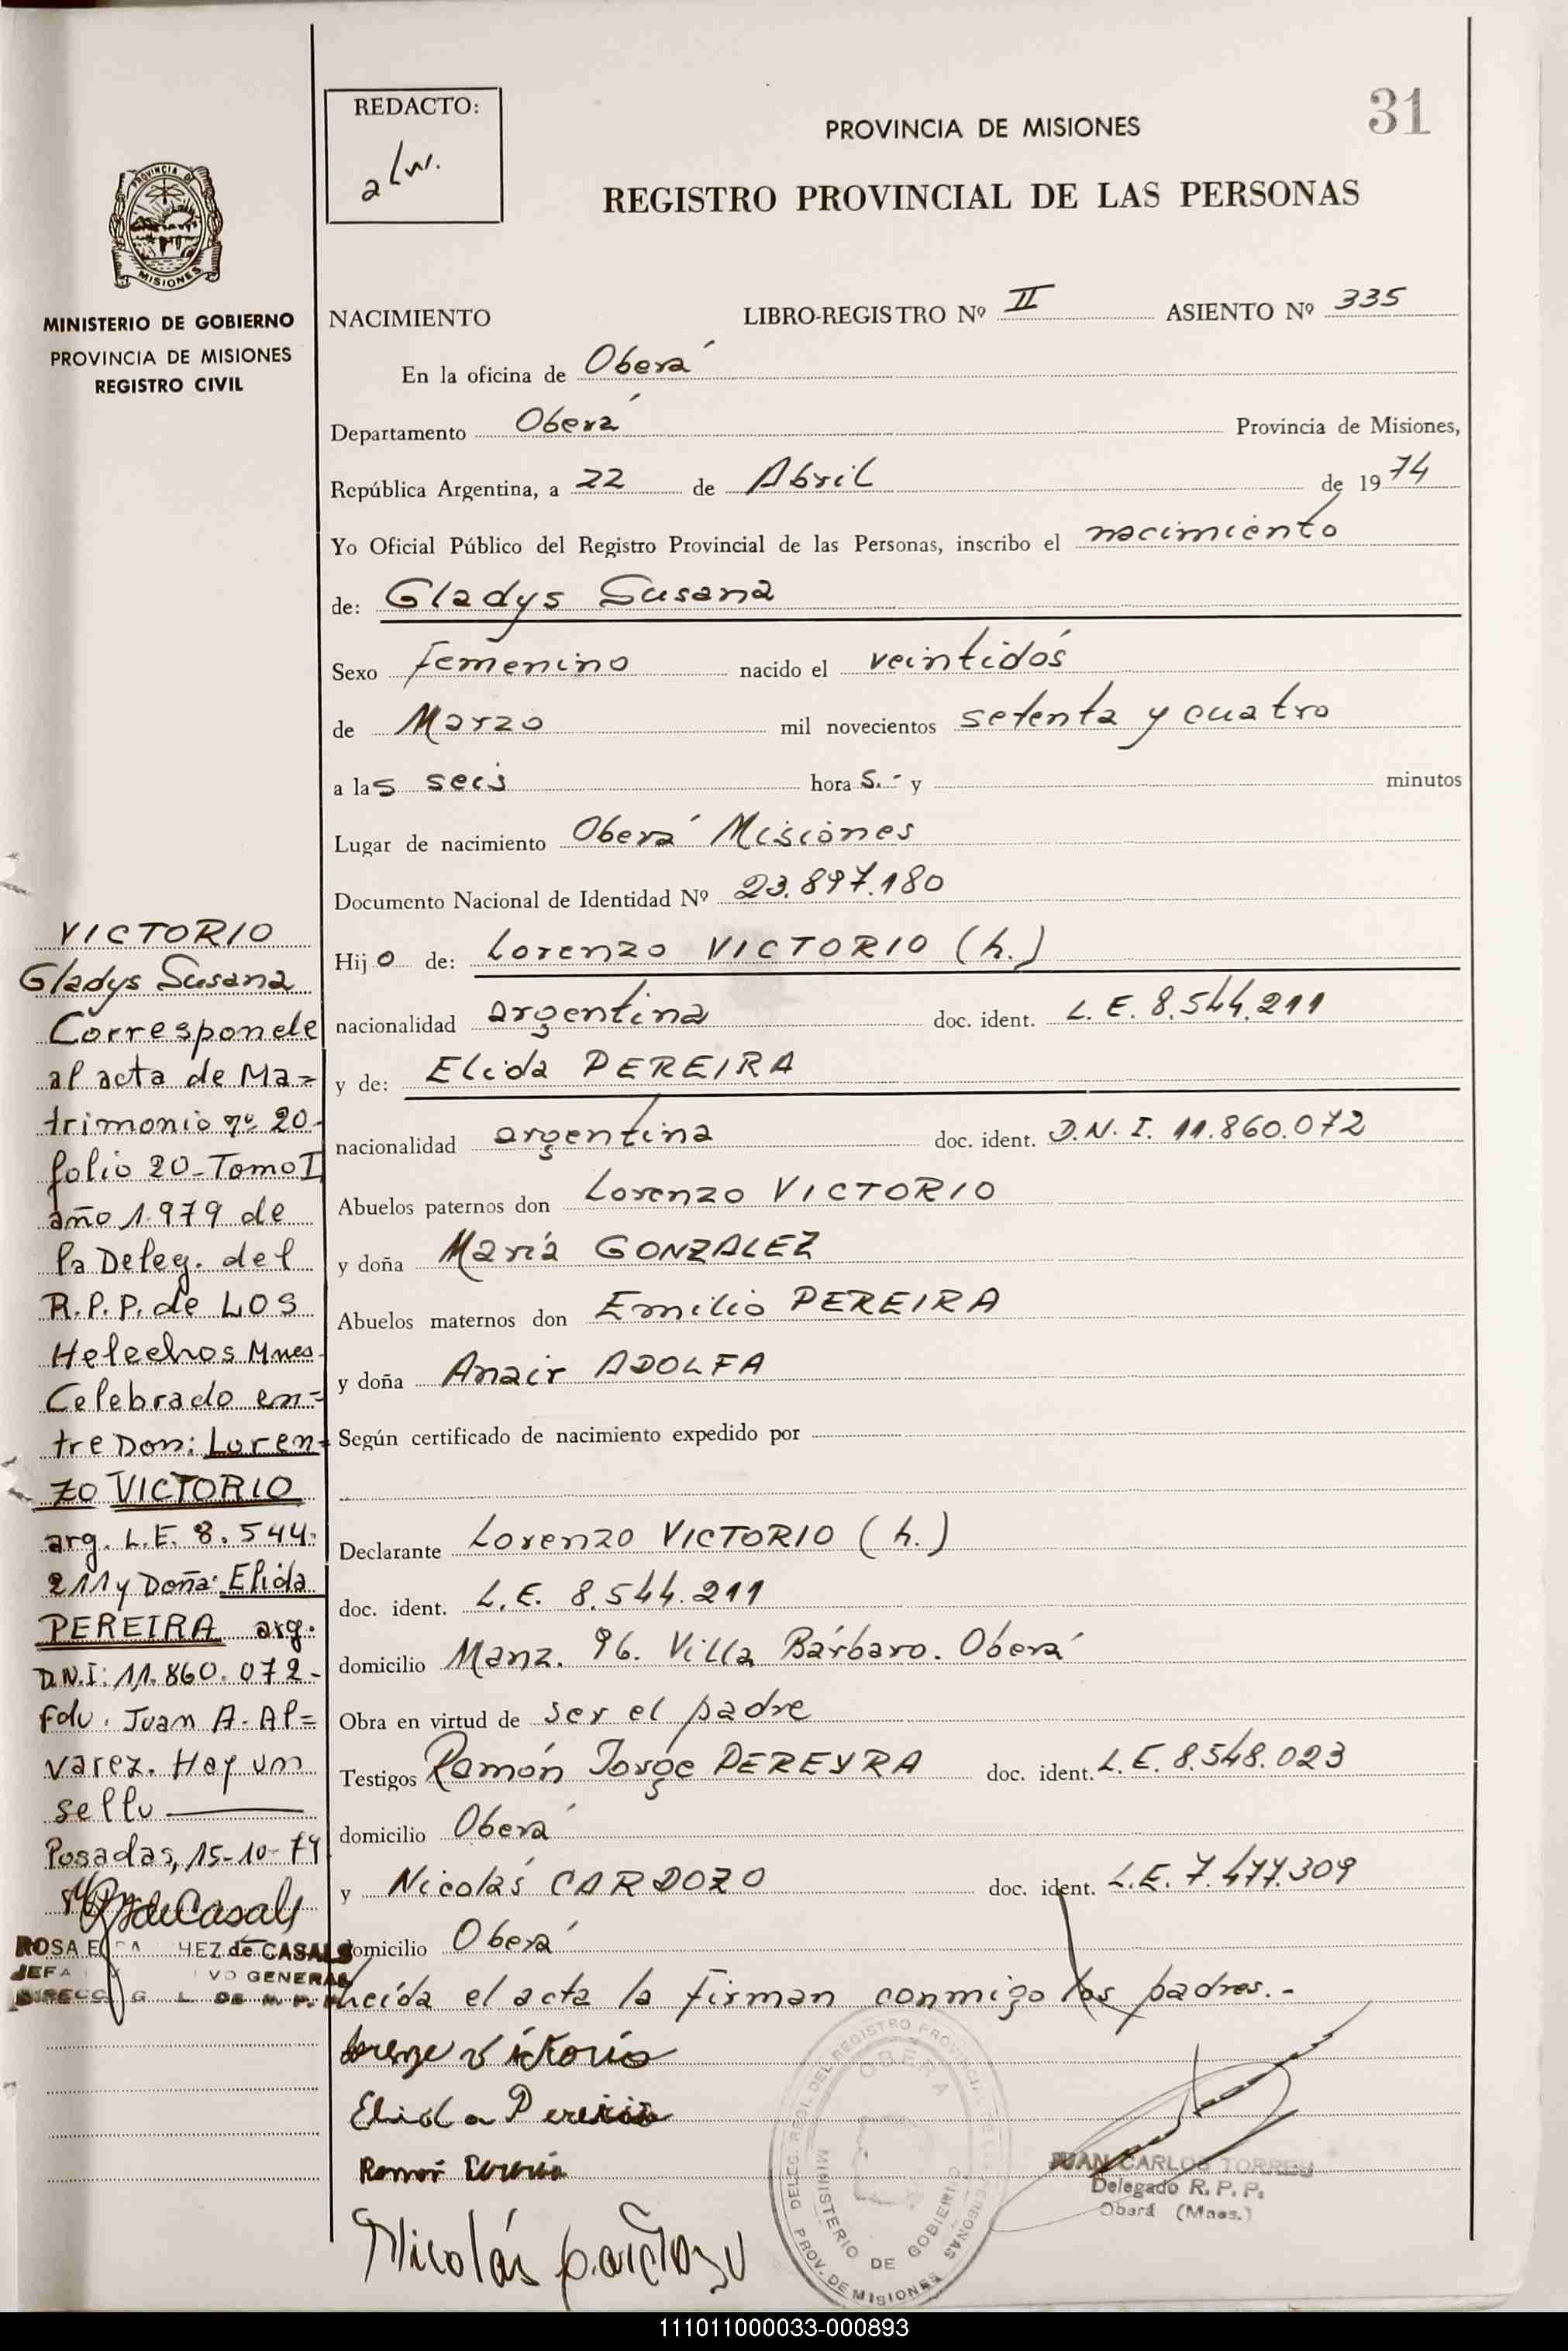 31
REDACTO:
PROVINCIA DE MISIONES
REGISTRO PROVINCIAL DE LAS PERSONAS
PROVINCIA DE
MISIONES
MINISTERIO DE GOBIERNO
PROVINCIA DE MISIONES
REGISTRO CIVIL
NACIMIENTO LIBRO-REGISTRO Nº II ASIENTO Nº 335
En la oficina de Oberá
Departamento Oberá Provincia de Misiones,
República Argentina, a 22 de Abril de 1974
Yo Oficial Público del Registro Provincial de las Personas, inscribo el nacimiento
de: Gladys Susana
Sexo Femenino nacido el veintidós
de Marzo mil novecientos setenta y cuatro
a las seis hora s.- y minutos
Lugar de nacimiento Oberá Misiones
Documento Nacional de Identidad Nº 23.897.180
Hijo de: Lorenzo VICTORIO (h.)
nacionalidad argentina doc. ident. L.E. 8.544.211
y de: Elida PEREIRA
nacionalidad argentina doc. ident. D.N.I. 11.860.072
Abuelos paternos don Lorenzo VICTORIO
y doña María GONZALEZ
Abuelos maternos don Emilio PEREIRA
y doña Anair ADOLFA
Según certificado de nacimiento expedido por
Declarante Lorenzo VICTORIO (h.)
doc. ident. L.E. 8.544.211
domicilio Manz. 96. Villa Bárbaro. Oberá
Obra en virtud de ser el padre
Testigos Ramón Jorge PEREYRA doc. ident. L.E. 8.548.023
domicilio Oberá
y Nicolás CARDOZO doc. ident. L.E. 7.477.309
domicilio Oberá
Leída el acta la firman conmigo los padres.-
Elida Pereira
Nicolás Cardozo
VICTORIO
Gladys Susana
Corresponde
al acta de Ma=
trimonio nº 20-
folio 20-Tomo I
año 1.979 de
la Deleg. del
R.P.P. de LOS
Helechos Mnes-
Celebrado en=
tre Don: Loren=
zo VICTORIO
arg. L.E. 8.544.
211 y Doña: Elida
PEREIRA arg.
D.N.I: 11.860.072-
Fdo. Juan A. Al=
varez. Hay un
sello
Posadas, 15-10-79
de Casals
ROSA E. HEZ de CASALS
JEFA VO GENERAL
DELEG. REGI. DEL REGISTRO PROVINCIAL DE LAS PERSONAS
OBERA
MINISTERIO DE GOBIERNO
PROV. DE MISIONES
JUAN CARLOS TORRES
Delegado R.P.P.
Oberá (Mnes.)
111011000033-000893